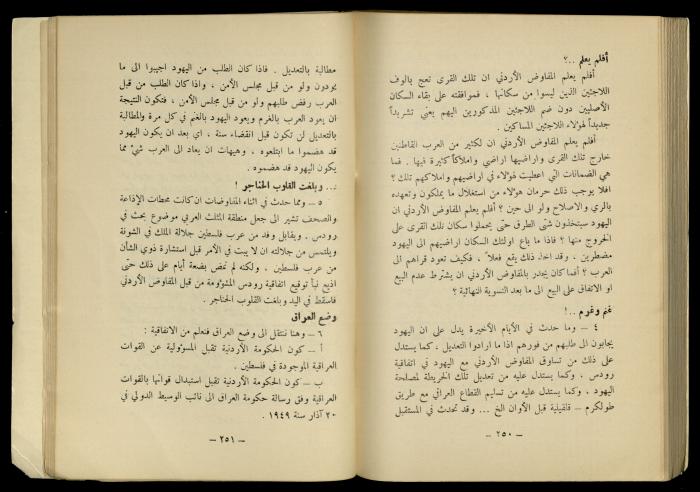 أفلم يعلم ..؟
أفلم يعلم المفاوض الأردني ان تلك القرى تعج بالوف
اللاجئين الذين ليسوا من سكانها ، فموافقته على بقاء السكان
الأصليين دون ضم اللاجئين المذكورين اليهم يعني تشريداً
جديداً لهؤلاء اللاجئين المساكين .
أفلم يعلم المفاوض الأردني ان لكثير من العرب القاطنين
خارج تلك القرى واراضيها اراضي واملاكاً كثيرة فيها . فما
هي الضمانات التي اعطيت لهؤلاء في اراضيهم واملاكهم تلك ؟
افلا يوجب ذلك حرمان هؤلاء من استغلال ما يملكون وتعهده
بالري والاصلاح ولو الى حين ؟ أفلم يعلم المفاوض الأردني ان
اليهود سيتخذون شتى الطرق حتى يحملوا سكان تلك القرى على
الخروج منها ؟ فاذا ما باع اولئك السكان اراضيهم الى اليهود
مضطرين . وقد اخذ ذلك يقع فعلاً ، فكيف تعود قراهم الى
العرب ؟ أفما كان يجدر بالمفاوض الأردني ان يشترط عدم البيع
او الاتفاق على البيع الى ما بعد التسوية النهائية ؟
غنم وغرم ..!
٤ – وما حدث في الأيام الأخيرة يدل على ان اليهود
يجابون الى طلبهم من فورهم اذا ما ارادوا التعديل ، كما يستدل
على ذلك من تساوق المفاوض الأردني مع اليهود في اتفاقية
رودس . وكما يستدل عليه من تعديل تلك الخريطة لمصلحة
اليهود . وكما يستدل عليه من تسليم القطاع العراقي مع طريق
طولكرم – قلقيلية قبل الأوان الخ ... وقد تحدث في المستقبل
– ٢٥٠ –
مطالبة بالتعديل . فاذا كان الطلب من اليهود اجيبوا الى ما
يودون ولو من قبل مجلس الأمن ، واذا كان الطلب من قبل
العرب رفض طلبهم ولو من قبل مجلس الأمن ، فتكون النتيجة
ان يعود العرب بالغرم ويعود اليهود بالغنم في كل مرة والمطالبة
بالتعديل لن تكون قبل انقضاء سنة ، اي بعد ان يكون اليهود
قد هضموا ما ابتلعوه ، وهيهات ان يعاد الى العرب شيء مما
يكون اليهود قد هضموه .
... وبلغت القلوب الحناجر !
٥ – ومما حدث في اثناء المفاوضات ان كانت محطات الإذاعة
والصحف تشير الى جعل منطقة المثلث العربي موضوع بحث في
رودس . ويقابل وفد من عرب فلسطين جلالة الملك في الشونة
ويلتمس من جلالته ان لا يبت في الأمر قبل استشارة ذوي الشأن
من عرب فلسطين . ولكنه لم تمض بضعة أيام على ذلك حتى
اذيع نبأ توقيع اتفاقية رودس المشؤومة من قبل المفاوض الأردني
فاسقط في اليد وبلغت القلوب الحناجر .
وضع العراق
٦ – وهنا ننتقل الى وضع العراق فنعلم من الاتفاقية :
أ – كون الحكومة الأردنية تقبل المسؤولية عن القوات
العراقية الموجودة في فلسطين .
ب – كون الحكومة الأردنية تقبل استبدال قواتها بالقوات
العراقية وفق رسالة حكومة العراق الى نائب الوسيط الدولي في
٢٠ آذار سنة ١٩٤٩ .
– ٢٥١ –